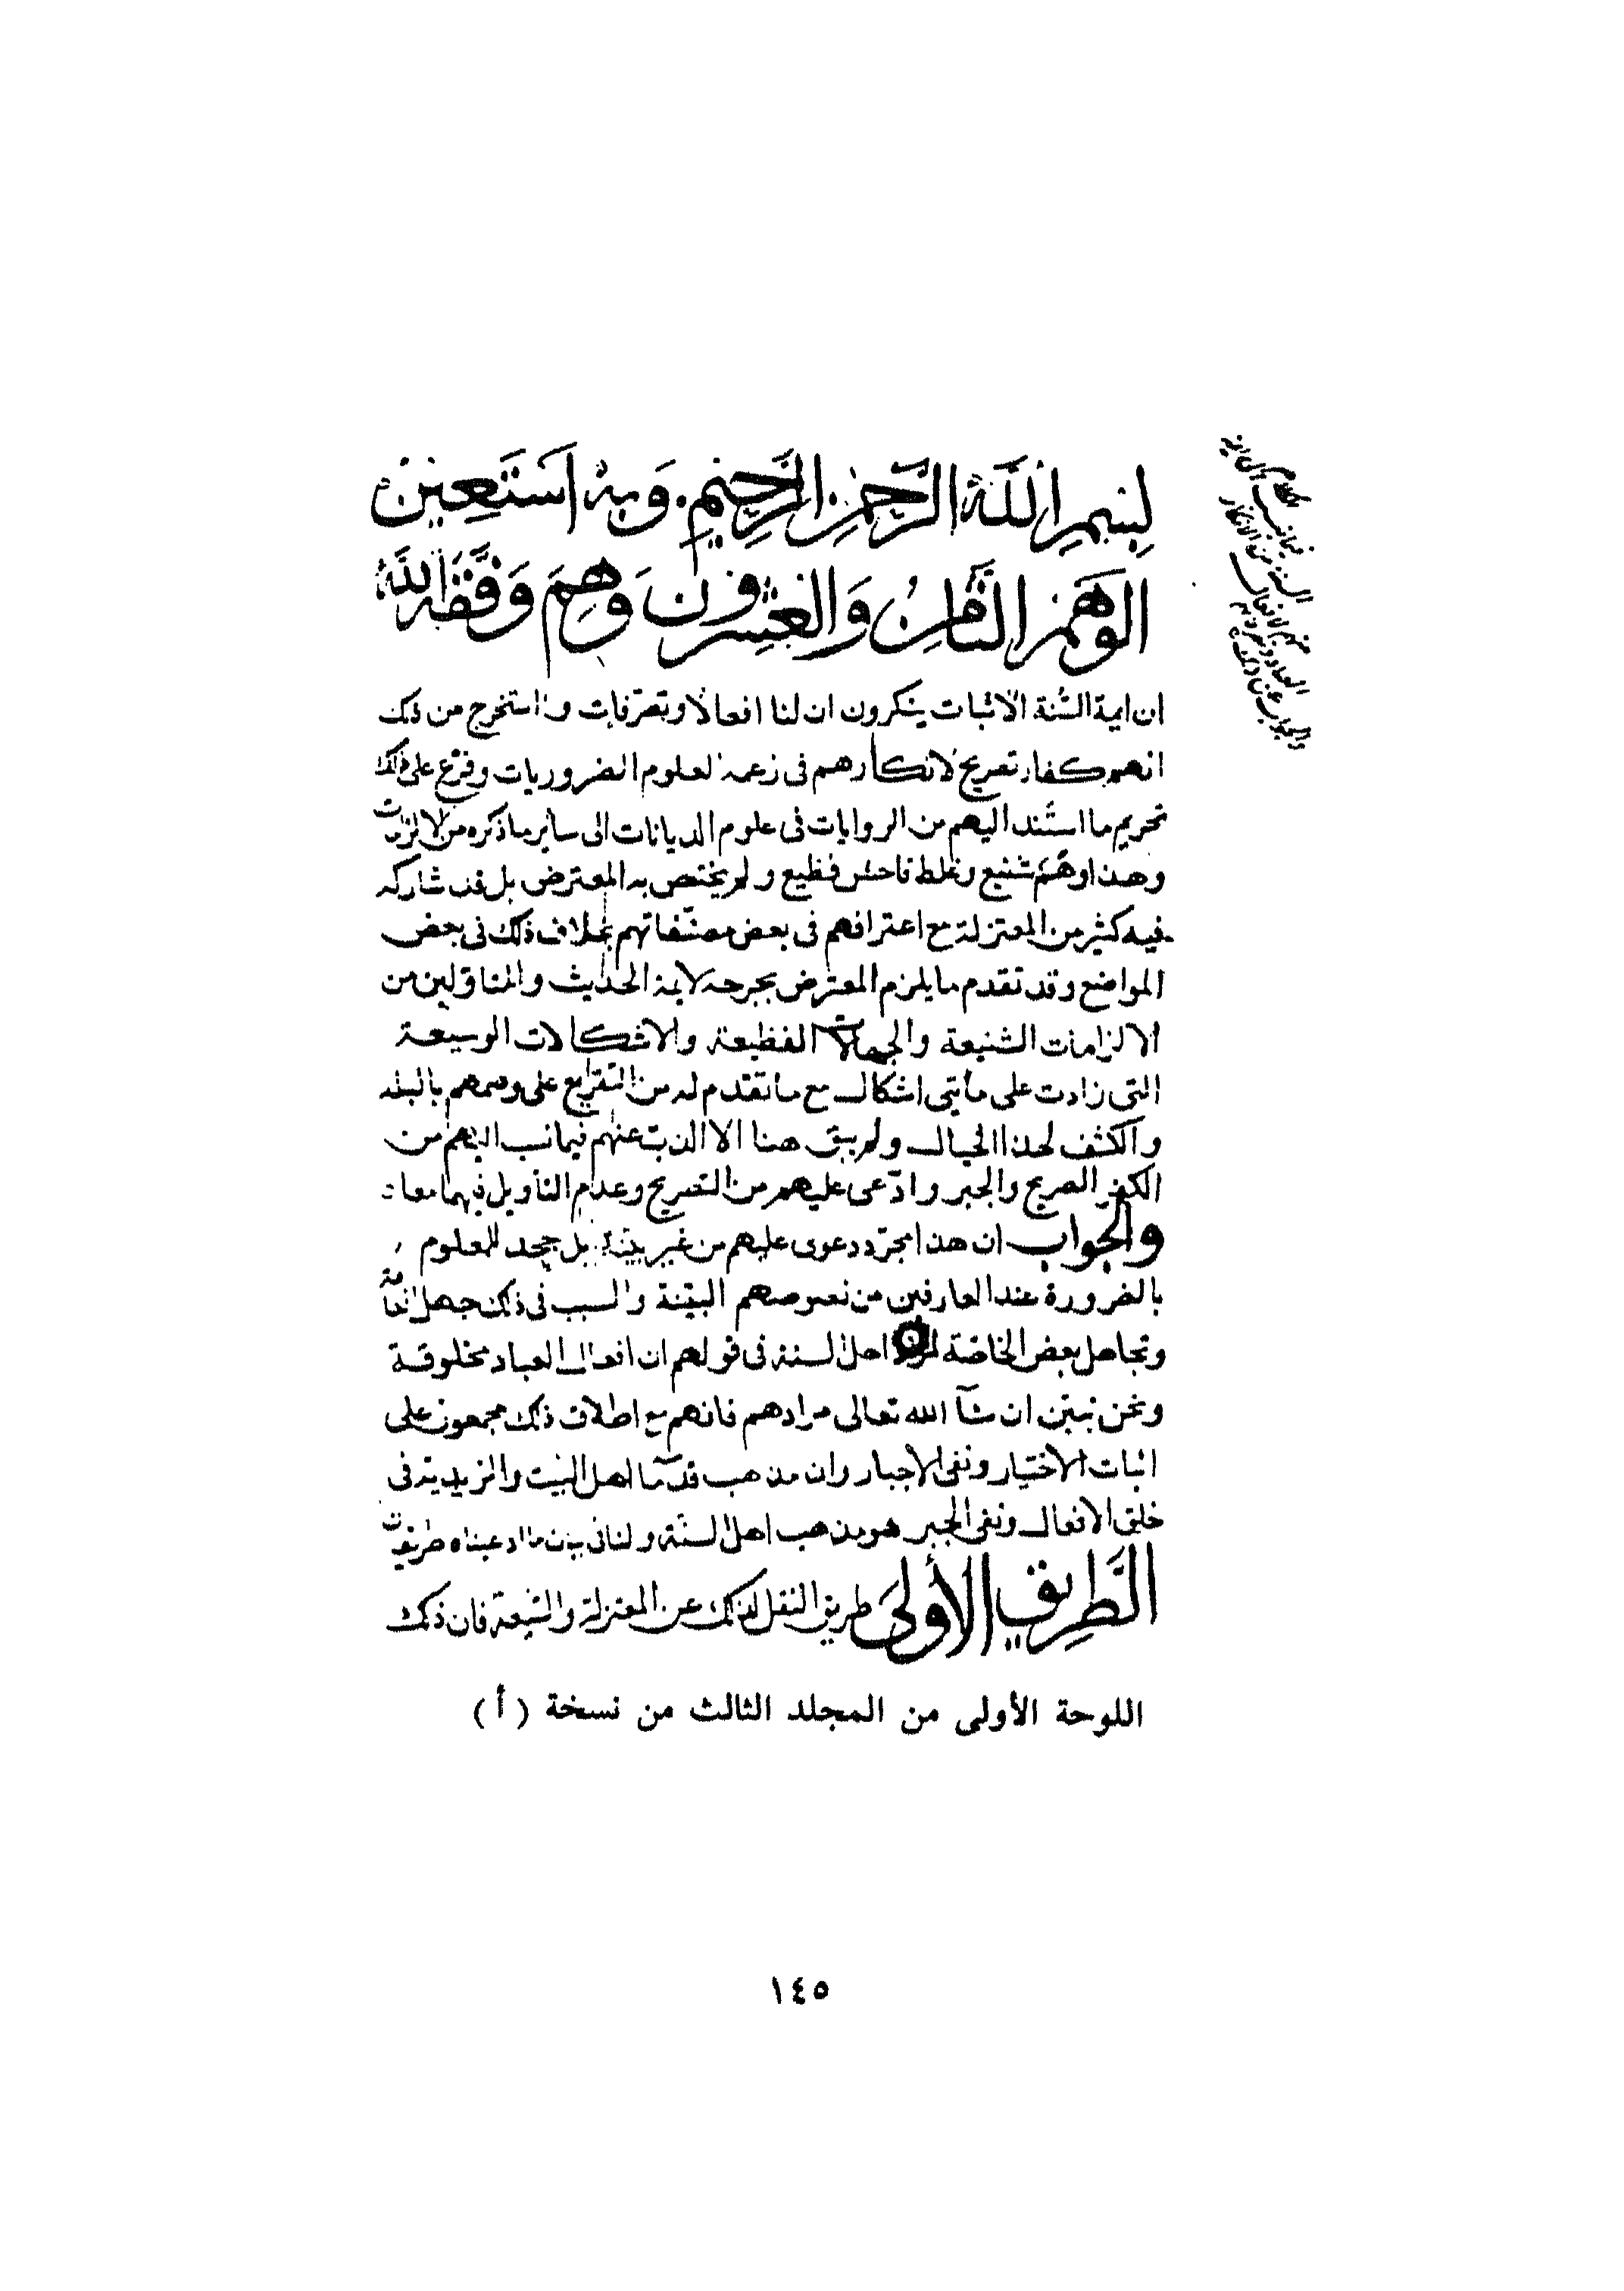 بِسْمِ اللهِ الرَّحْمٰنِ الرَّحِيْمِ. وَبِهِ اَسْتَعِينُ
الوَهمُ الثَّامِنُ وَالعِشرونَ وَهِمَ وَفَّقَهُ اللهُ
ان ايمة السُّنة الاثبات ينكرون ان لنا افعالا وتصرّفات واستخرج من ذلك
انهم كفار تصريح لانكارهم فى زعمه العلوم الضروريات وفرّع على ذلك
تحريم ما استند اليهم من الروايات فى علوم الديانات الى ساير ما ذكره من الالزامات
وهذا وَهَمٌ شنيع وغلط فاحش فظيع ولم يختص به المعترض بل قد شاركه
فيه كثير من المعتزلة مع اعترافهم فى بعض مصنّفاتهم بخلاف ذلك فى بعض
المواضع وقد تقدم ما يلزم المعترض بجرحه لايمة الحديث والمتأولين من
الالزامات الشنيعة والجهالات الفظيعة والاشكالات الوسيعة
التى زادت على مأتى اشكال مع ما تقدم له من التقريع على وصمهم بالبله
والكشف لهذا الخيال ولم يبق هنا الا الذبّ عنهم فيما نسب اليهم من
الكفر الصريح والجبر وادّعى عليهم من التصريح وعدم التأويل فيهما معا
والجواب ان هذا مجرّد دعوى عليهم من غير بينة بل جحد للمعلوم
بالضرورة عند العارفين من نصوصهم البيّنة والسبب فى ذلك جهل العامة
وتجاهل بعض الخاصّة لمراد اهل السنة فى قولهم ان افعال العباد مخلوقة
ونحن نبيّن ان شآ الله تعالى مرادهم فانهم مع اطلاق ذلك مجمعون على
اثبات الاختيار ونفى الاجبار وان مذهب قدمآ اهل البيت والزيدية فى
خلق الافعال ونفى الجبر هو مذهب اهل السنّة ولنا فى بيان ما ادعيناه طريقان
الطَّرِيق الأُولَى طريق النقل لذلك عن المعتزلة والشيعة فان ذلك
اللوحة الأولى من المجلد الثالث من نسخة (أ)
١٤٥